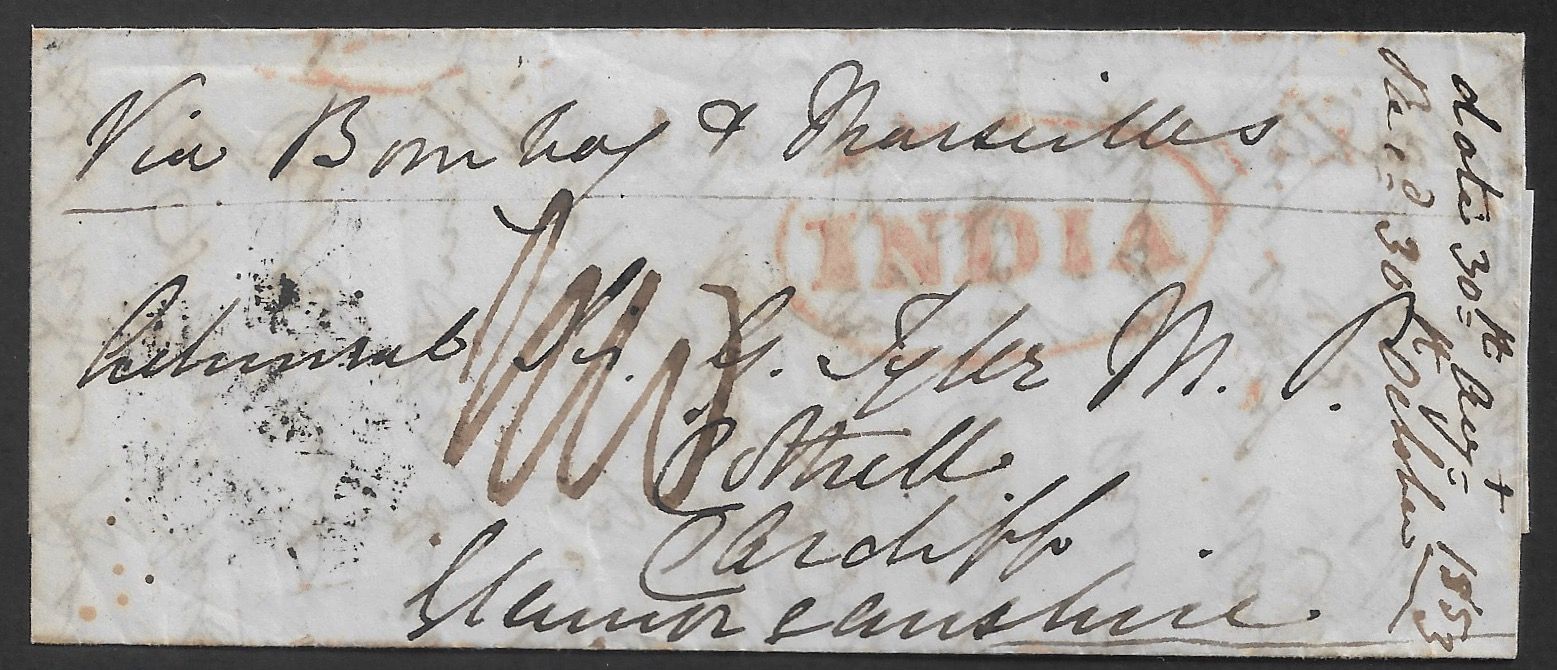 Via Bombay & Marseilles
INDIA
Admiral Sir G. Tyler M. P.
Cottrell
Cardiff
Glamorganshire.
date 30th Augt 1853
Recd 30th October